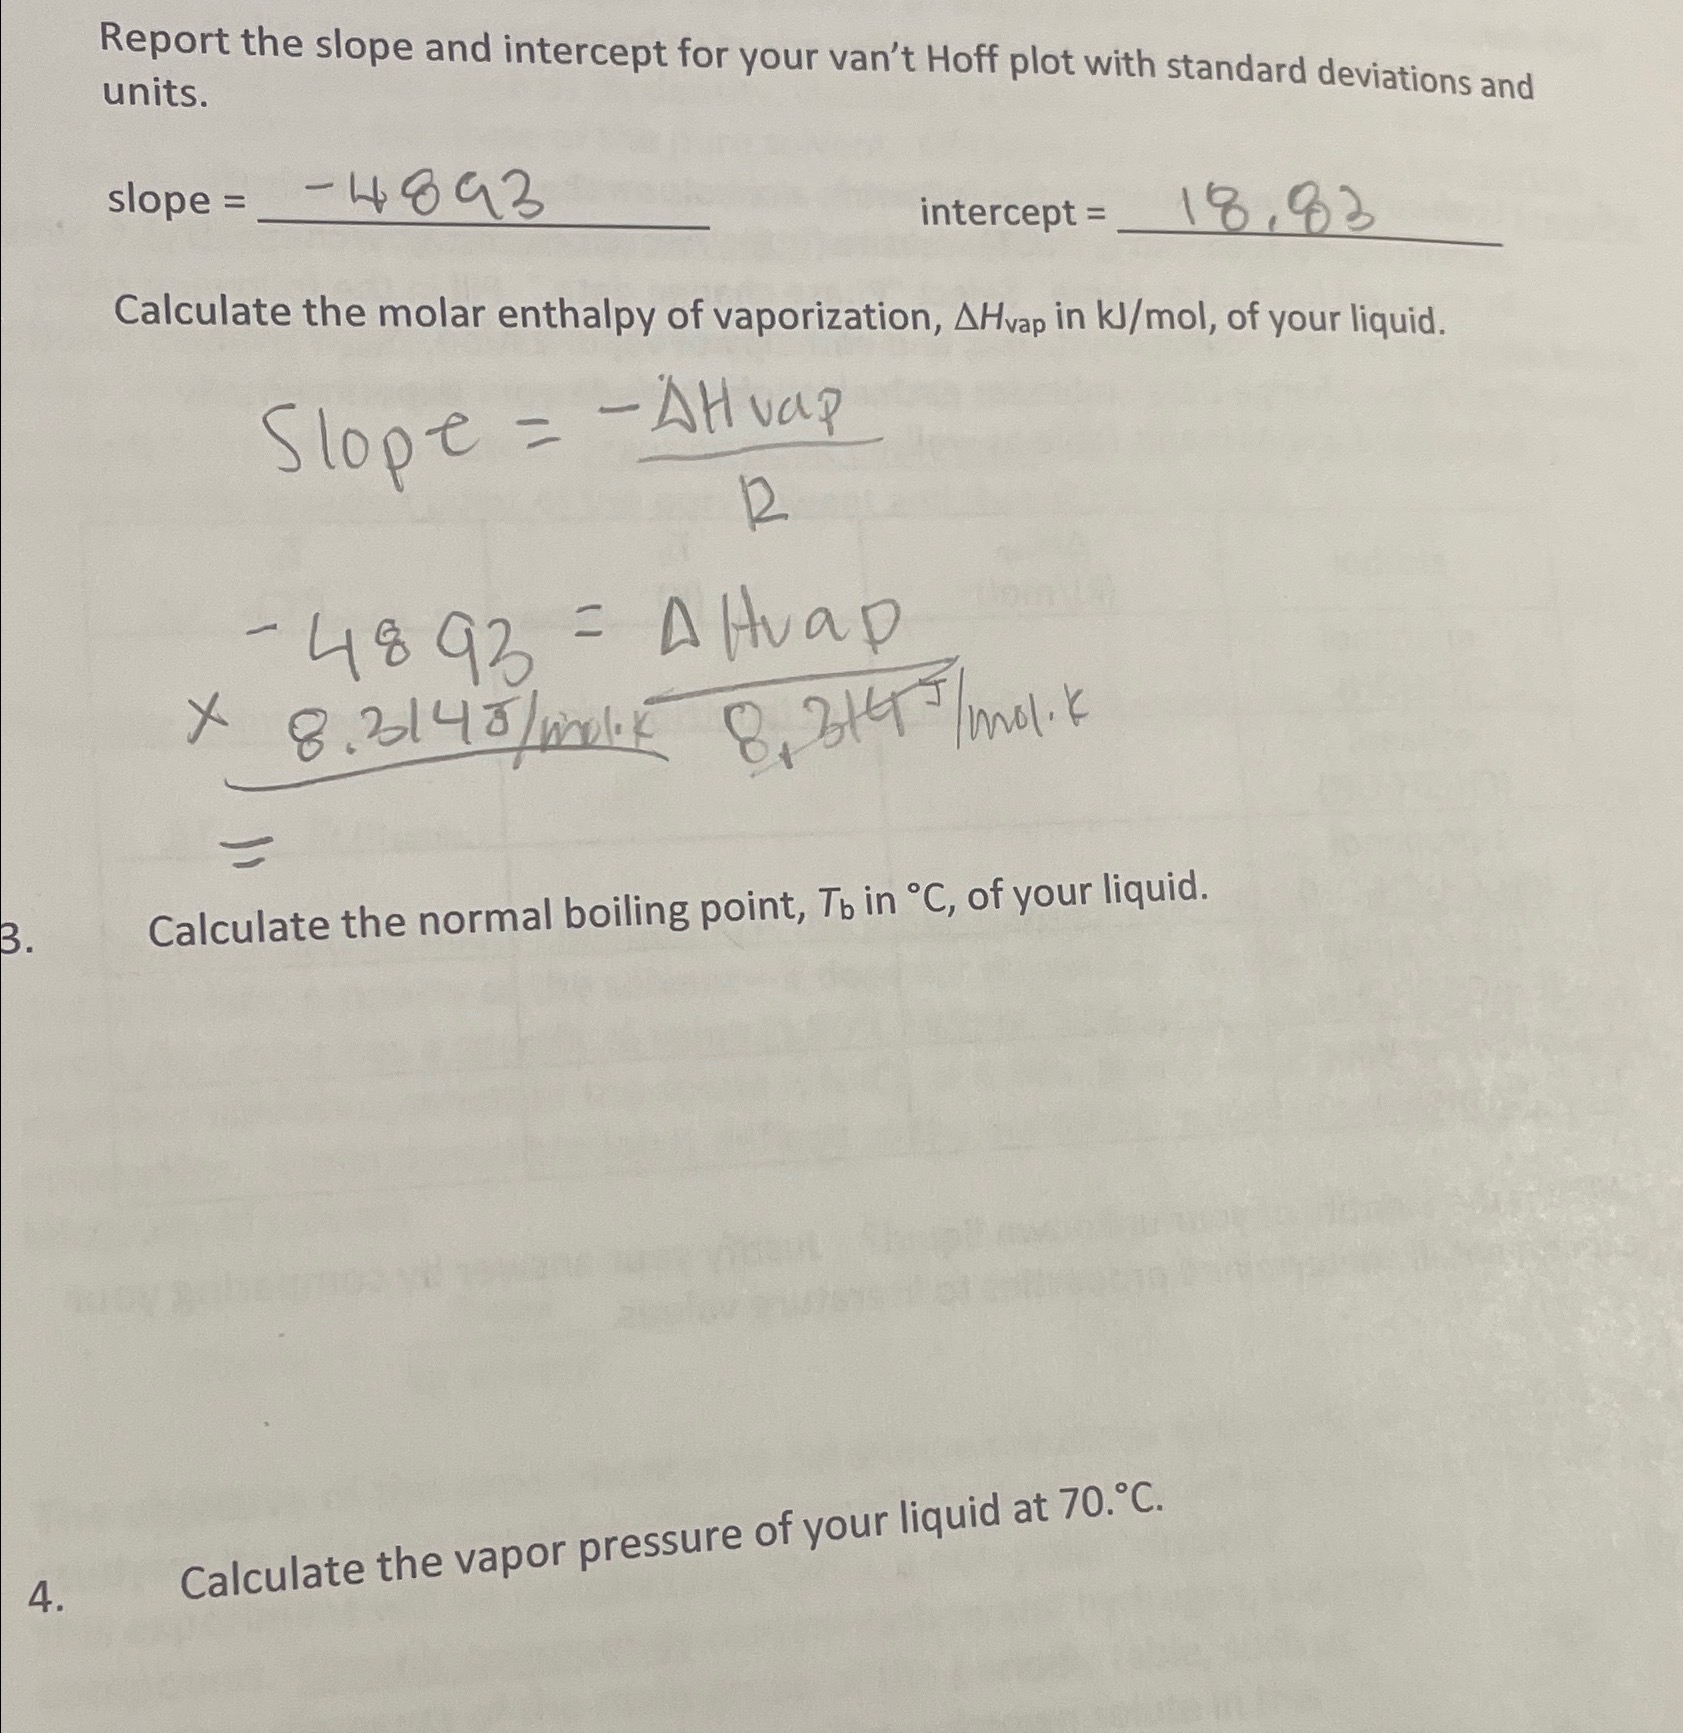 Report the slope and intercept for your van't Hoff plot with standard deviations and
units.
slope = -4893 intercept = 18.83
Calculate the molar enthalpy of vaporization, ΔHvap in kJ/mol, of your liquid.
Slope = -ΔHvap
R
-4893 = ΔHvap
× 8.314 J/mol.K 8.314 J/mol.K
=
3. Calculate the normal boiling point, Tb in °C, of your liquid.
4. Calculate the vapor pressure of your liquid at 70.°C.